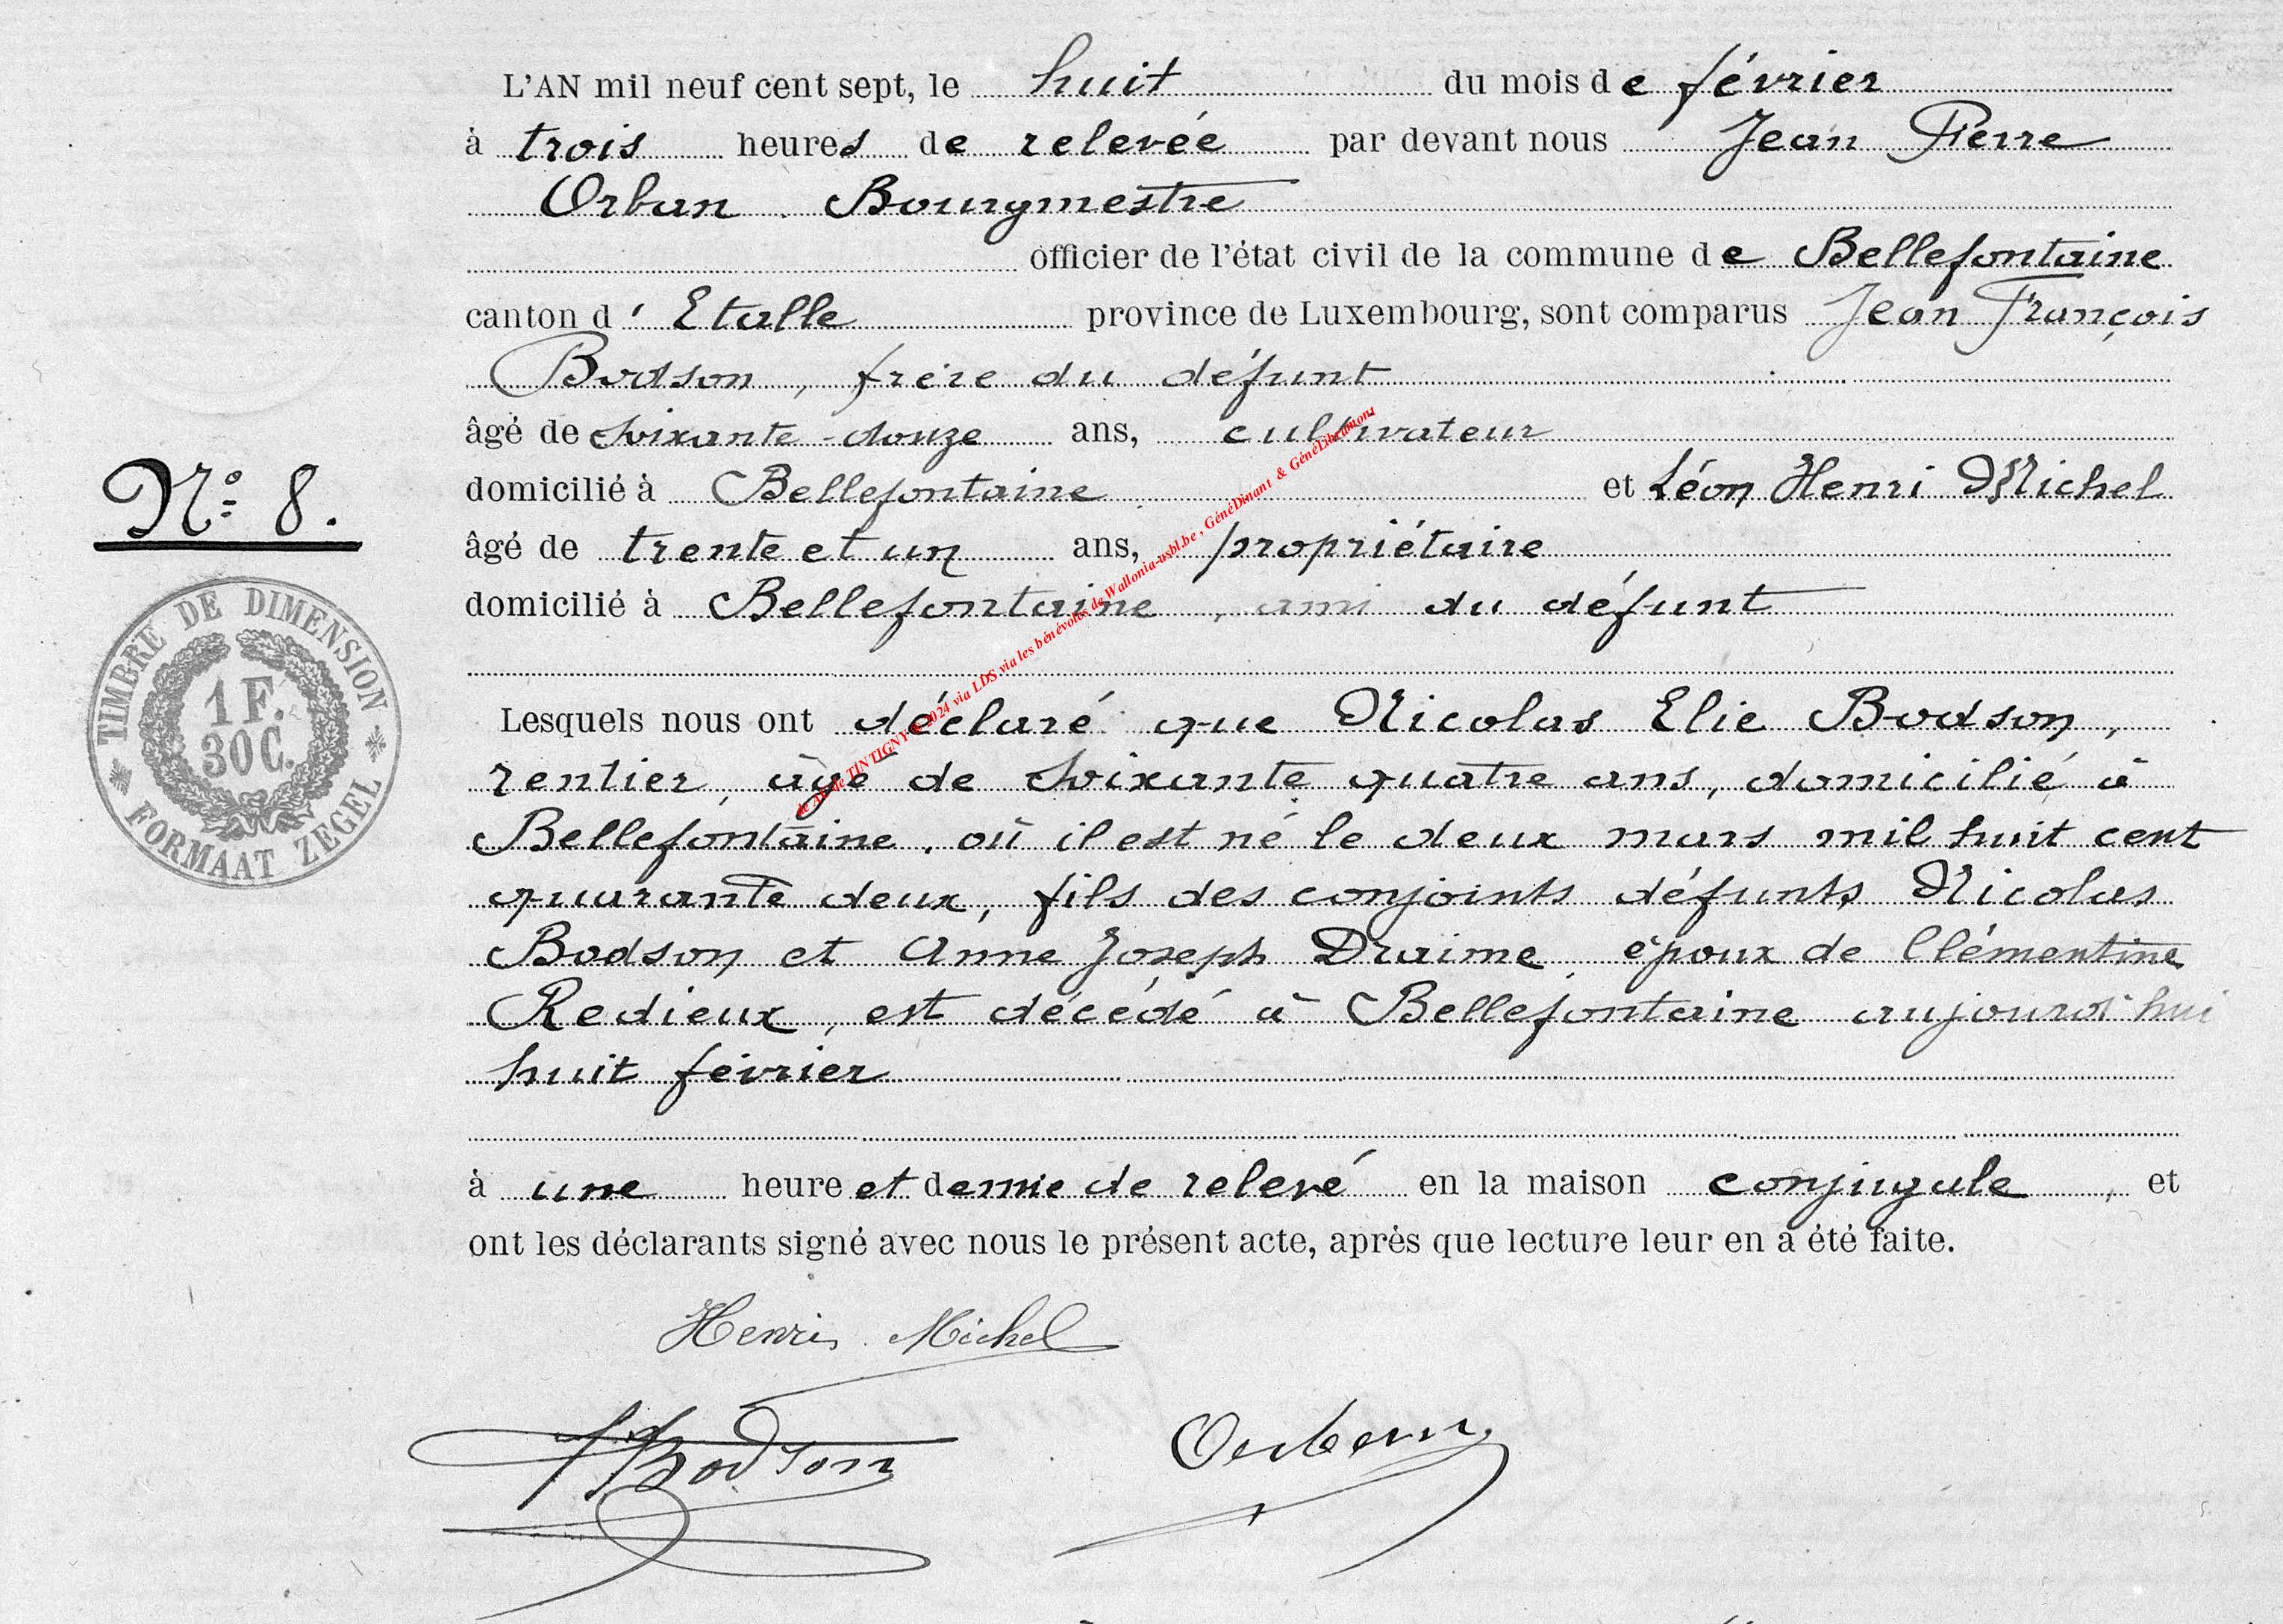 L'AN mil neuf cent sept, le huit du mois de février
à trois heures de relevée par devant nous Jean Pierre
Orban Bourgmestre
officier de l'état civil de la commune de Bellefontaine
canton d'Etalle province de Luxembourg, sont comparus Jean François
Bodson, frère du défunt
âgé de soixante-douze ans, cultivateur
domicilié à Bellefontaine et Léon Henri Michel
âgé de trente et un ans, propriétaire
domicilié à Bellefontaine, ami du défunt
N° 8.
TIMBRE DE DIMENSION
1 F.
30 C.
FORMAAT ZEGEL
Lesquels nous ont déclaré que Nicolas Elie Bodson,
rentier, âgé de soixante quatre ans, domicilié à
Bellefontaine, où il est né le deux mars mil huit cent
quarante deux, fils des conjoints défunts Nicolas
Bodson et Anne Joseph Draime, époux de Clémentine
Redieux, est décédé à Bellefontaine aujourd'hui
huit février
à une heure et demie de relevé en la maison conjugale, et
ont les déclarants signé avec nous le présent acte, après que lecture leur en a été faite.
Henri Michel
Bodson
Orban
TINTIGNY © 2024 via LDS via les bénévoles de Wallonia-asbl.be, GénéDinant & GénéLibramont